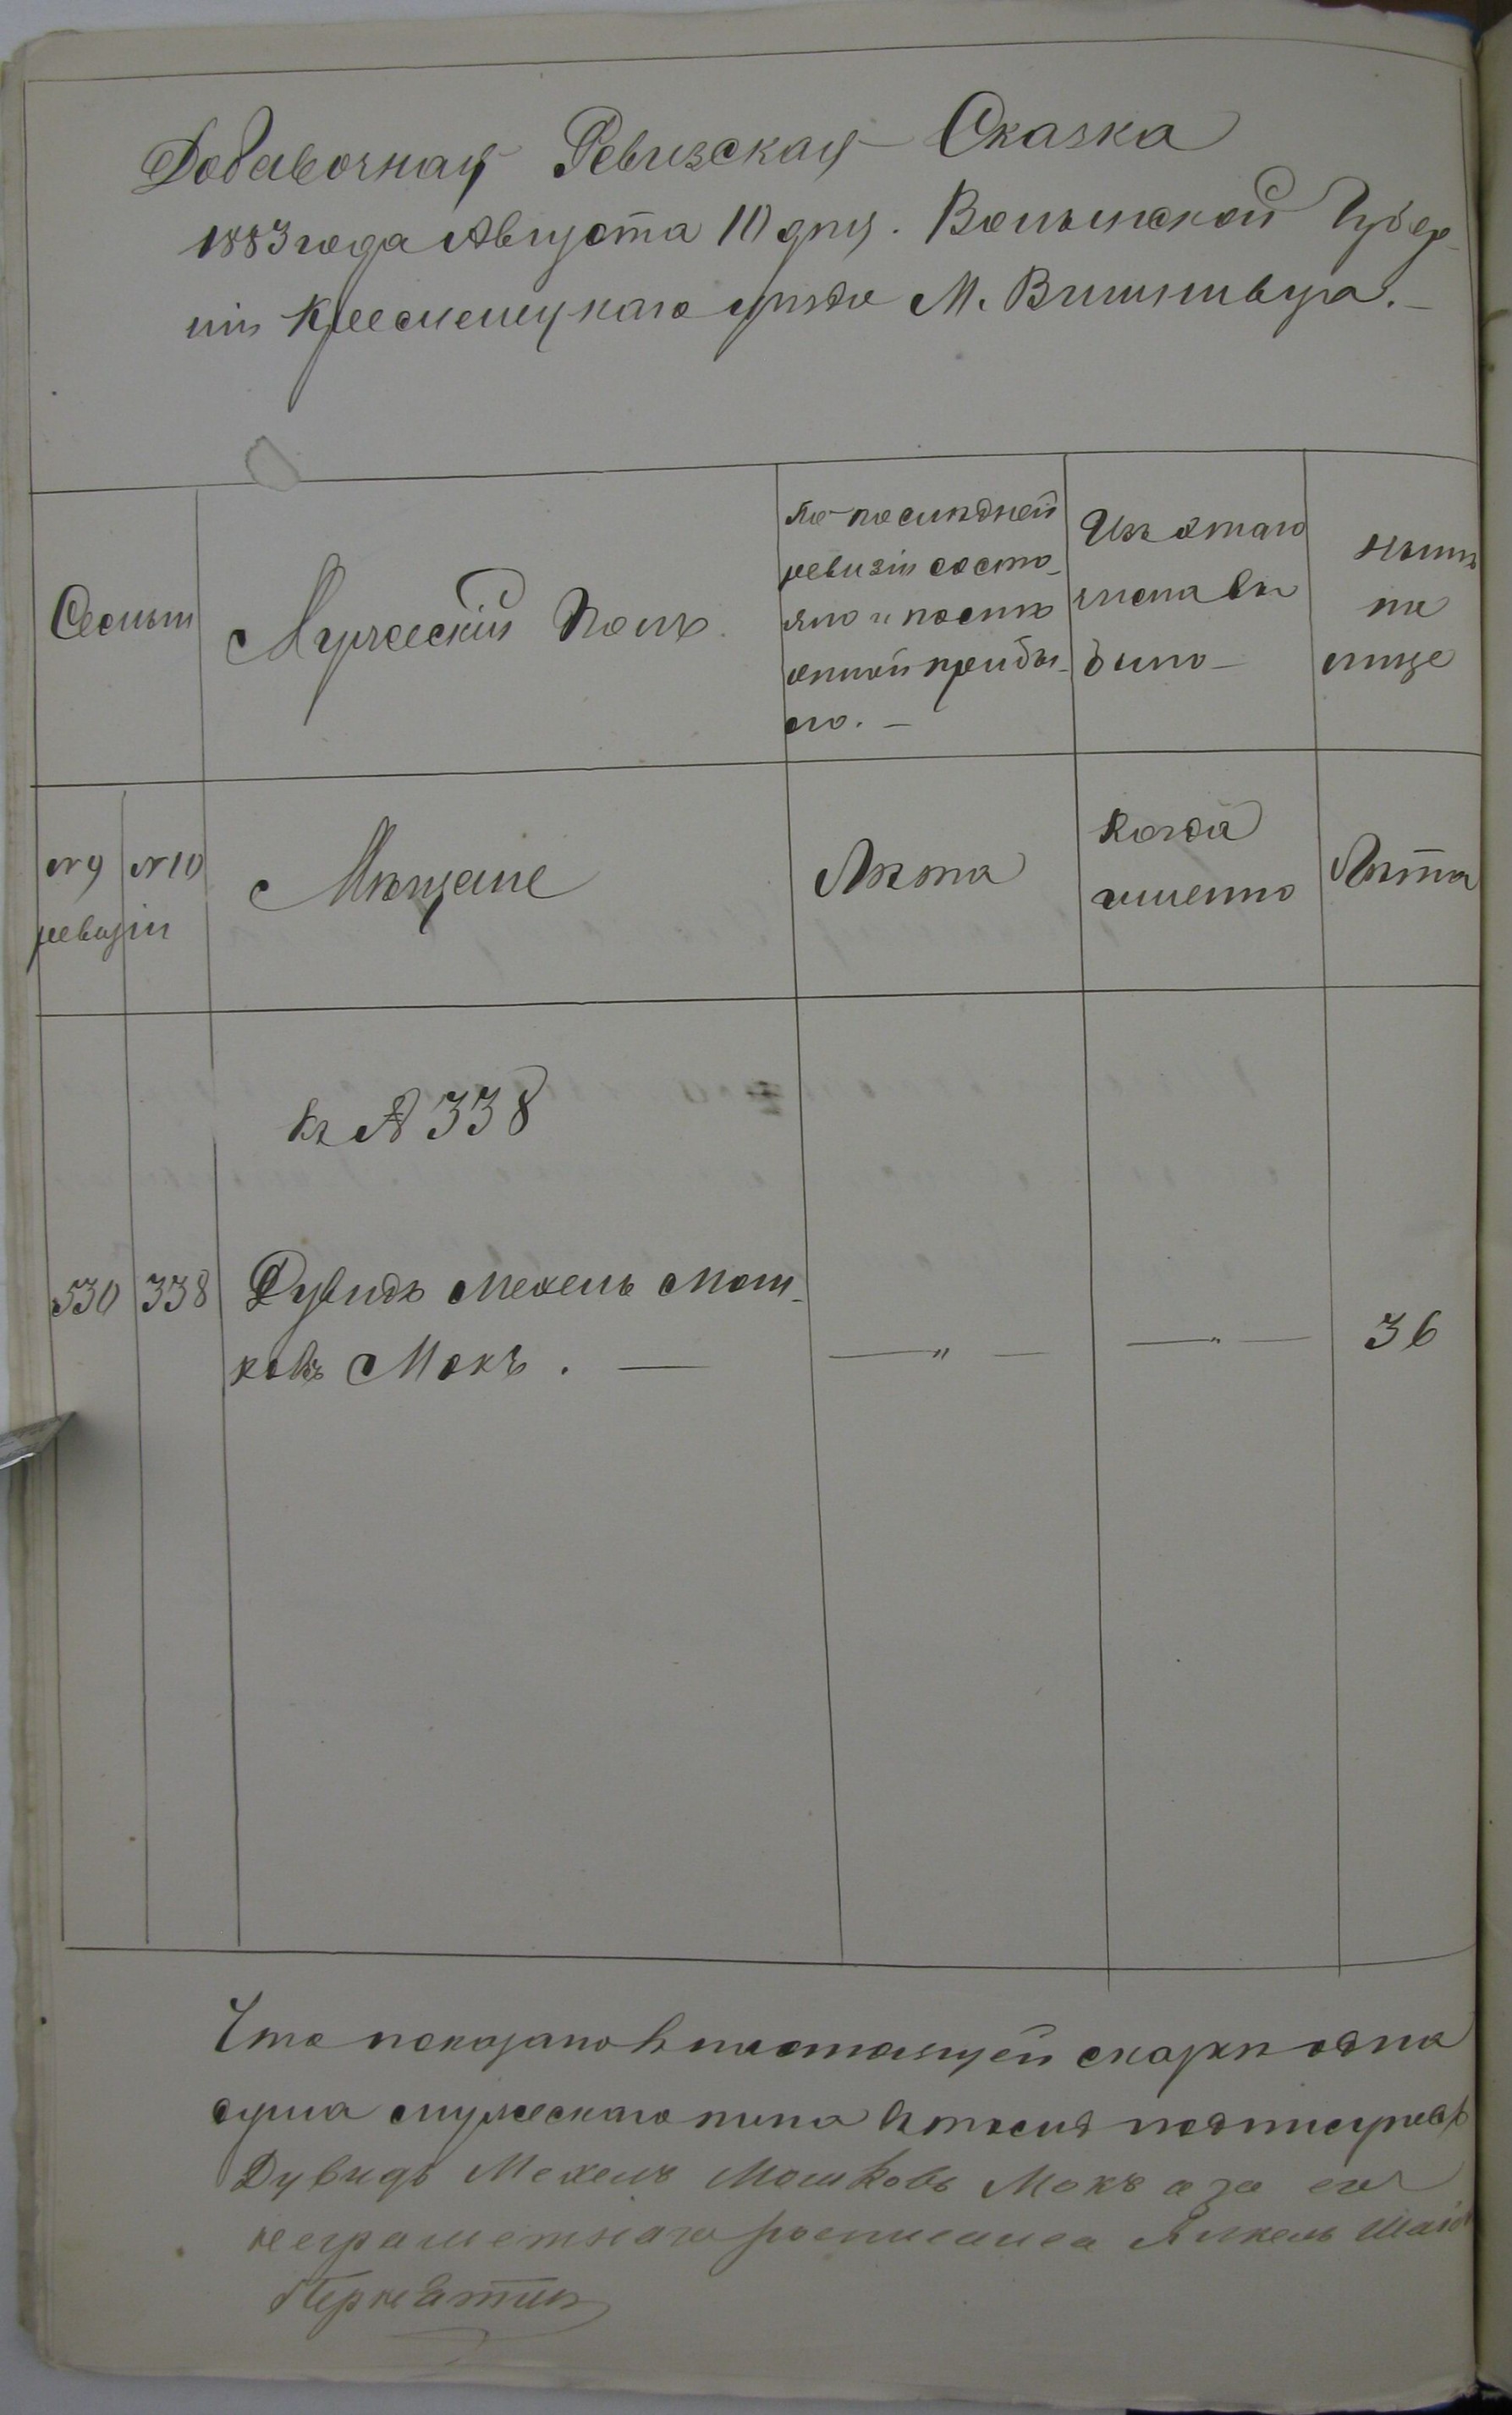 Добавочная Ревизская Сказка
1883 года Августа 10 дня. Волынской Губер-
ніи Кременецкаго уѣзда М. Вишневца.-
Семьи
Мужескій Полъ.
По послѣдней
ревизіи состо-
яло и послѣ
оной прибы-
ло. -
Изъ этаго
числа вы
было -
Нынѣ
на
лице
№ 9 № 10
ревизіи
Мѣщане
Лѣта
Когда
именно
Лѣта
къ № 338
530 338 Дувидъ Мехель Мош-
ковъ Мокъ. — — " — — " — 36
Что показано въ настоящей сказкѣ одна
душа мужескаго пола въ томъ
Дувидъ Мехель Мошковъ Мокъ а за его
неграметнаго росписался